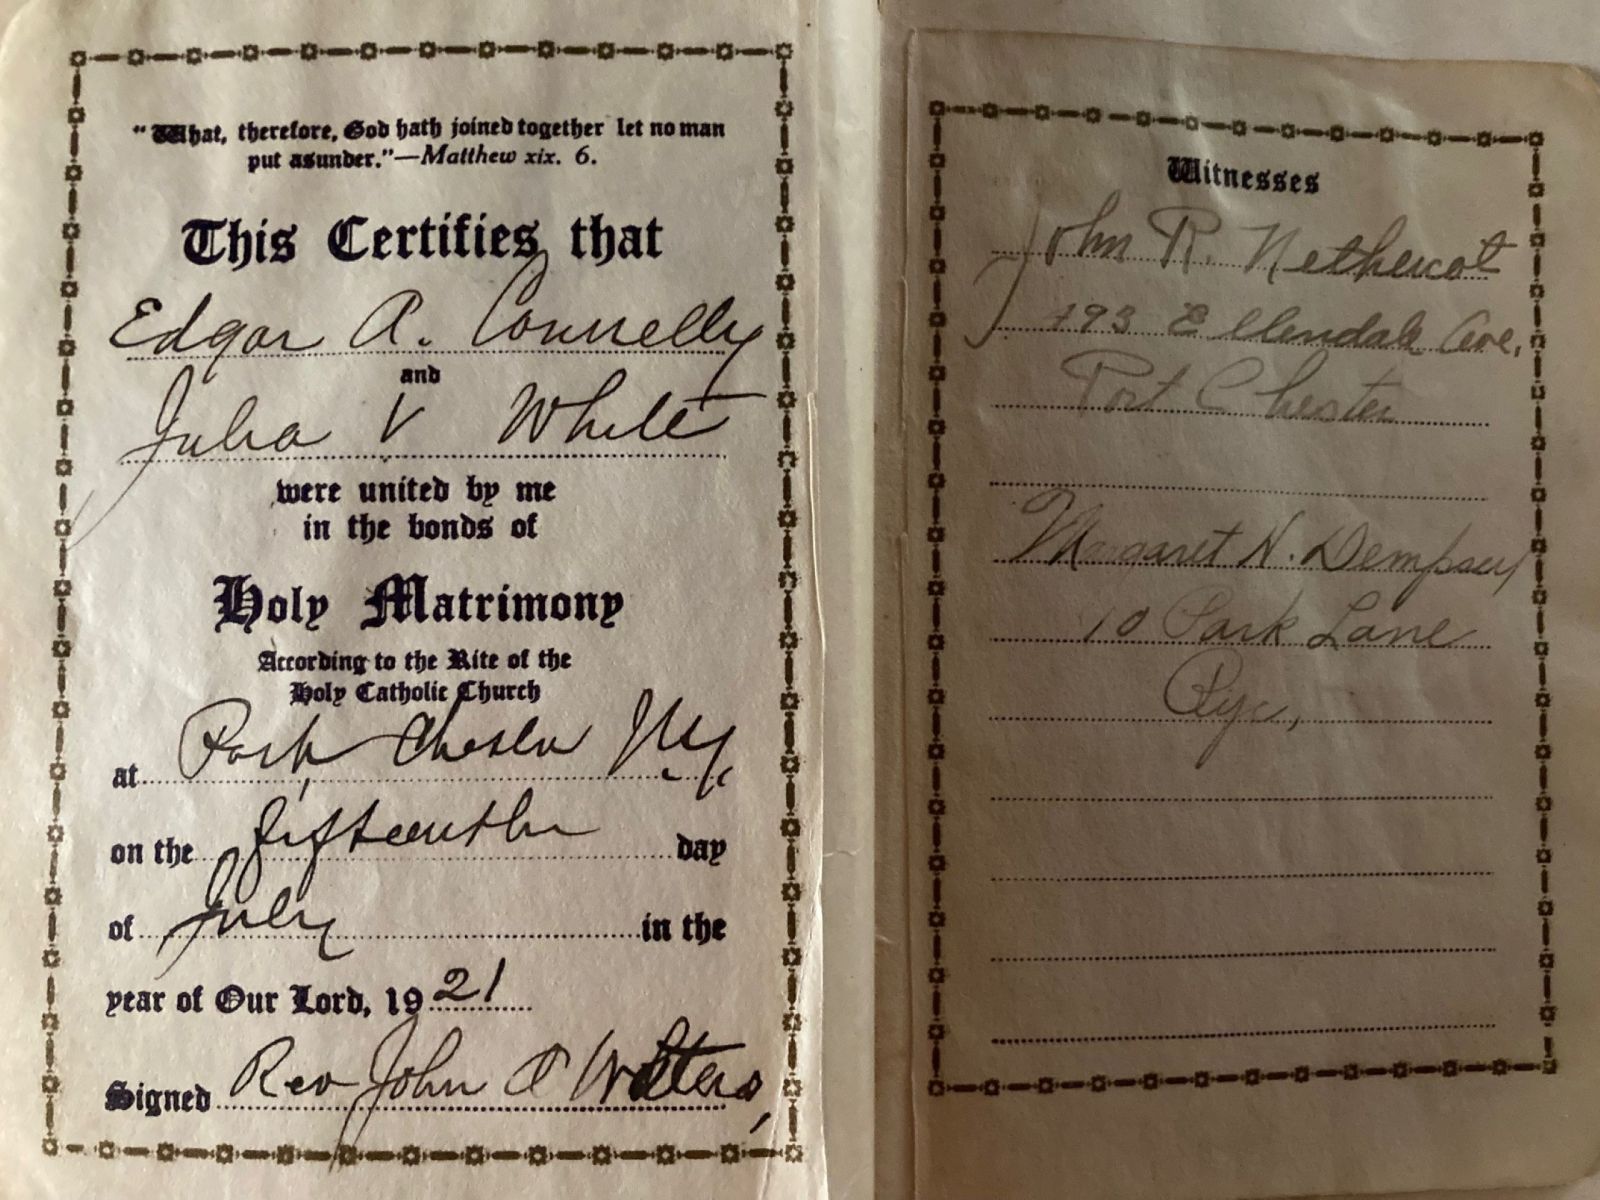 "What, therefore, God hath joined together let no man
put asunder."—Matthew xix. 6.
This Certifies that
Edgar A. Connelly
and
Julia V White
were united by me
in the bonds of
Holy Matrimony
According to the Rite of the
Holy Catholic Church
at Port Chester N.Y.
on the fifteenth day
of July in the
year of Our Lord, 1921
Signed Rev John A Walters,
Witnesses
John R. Nethercot
193 Ellendale Ave,
Port Chester
Margaret H. Dempsey
10 Park Lane
Rye,